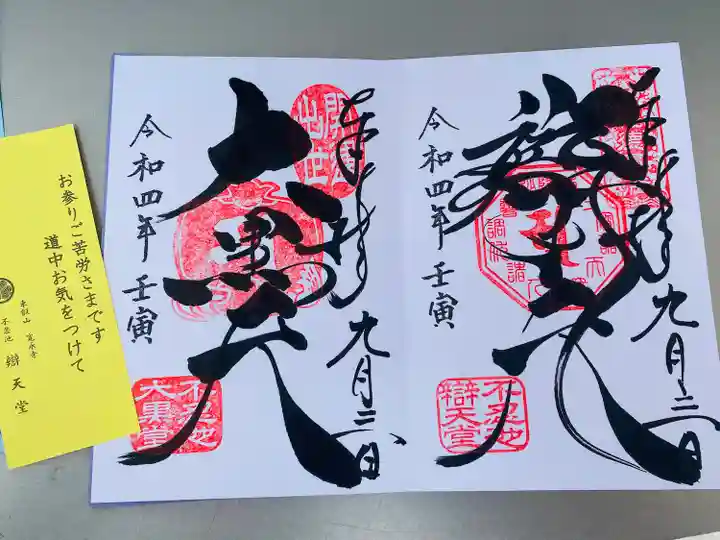 奉拝
辯才天
令和四年 壬寅
九月三日
不忍池
辯天堂
奉拝
大黒天
令和四年 壬寅
九月三日
不忍池
大黒堂
お参りご苦労さまです
道中お気をつけて
東叡山 寛永寺
不忍池 辯天堂